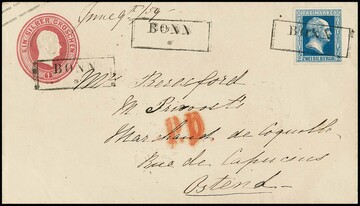 June 9th/59
EIN SILBER GROSCHEN
FREIMARKE
ZWEI SILBERGR.
BONN
BONN
BONN
Mrs Beresford
M. Provost's
Marchand de Coquille
Rue de Capucins
P.D
Ostend